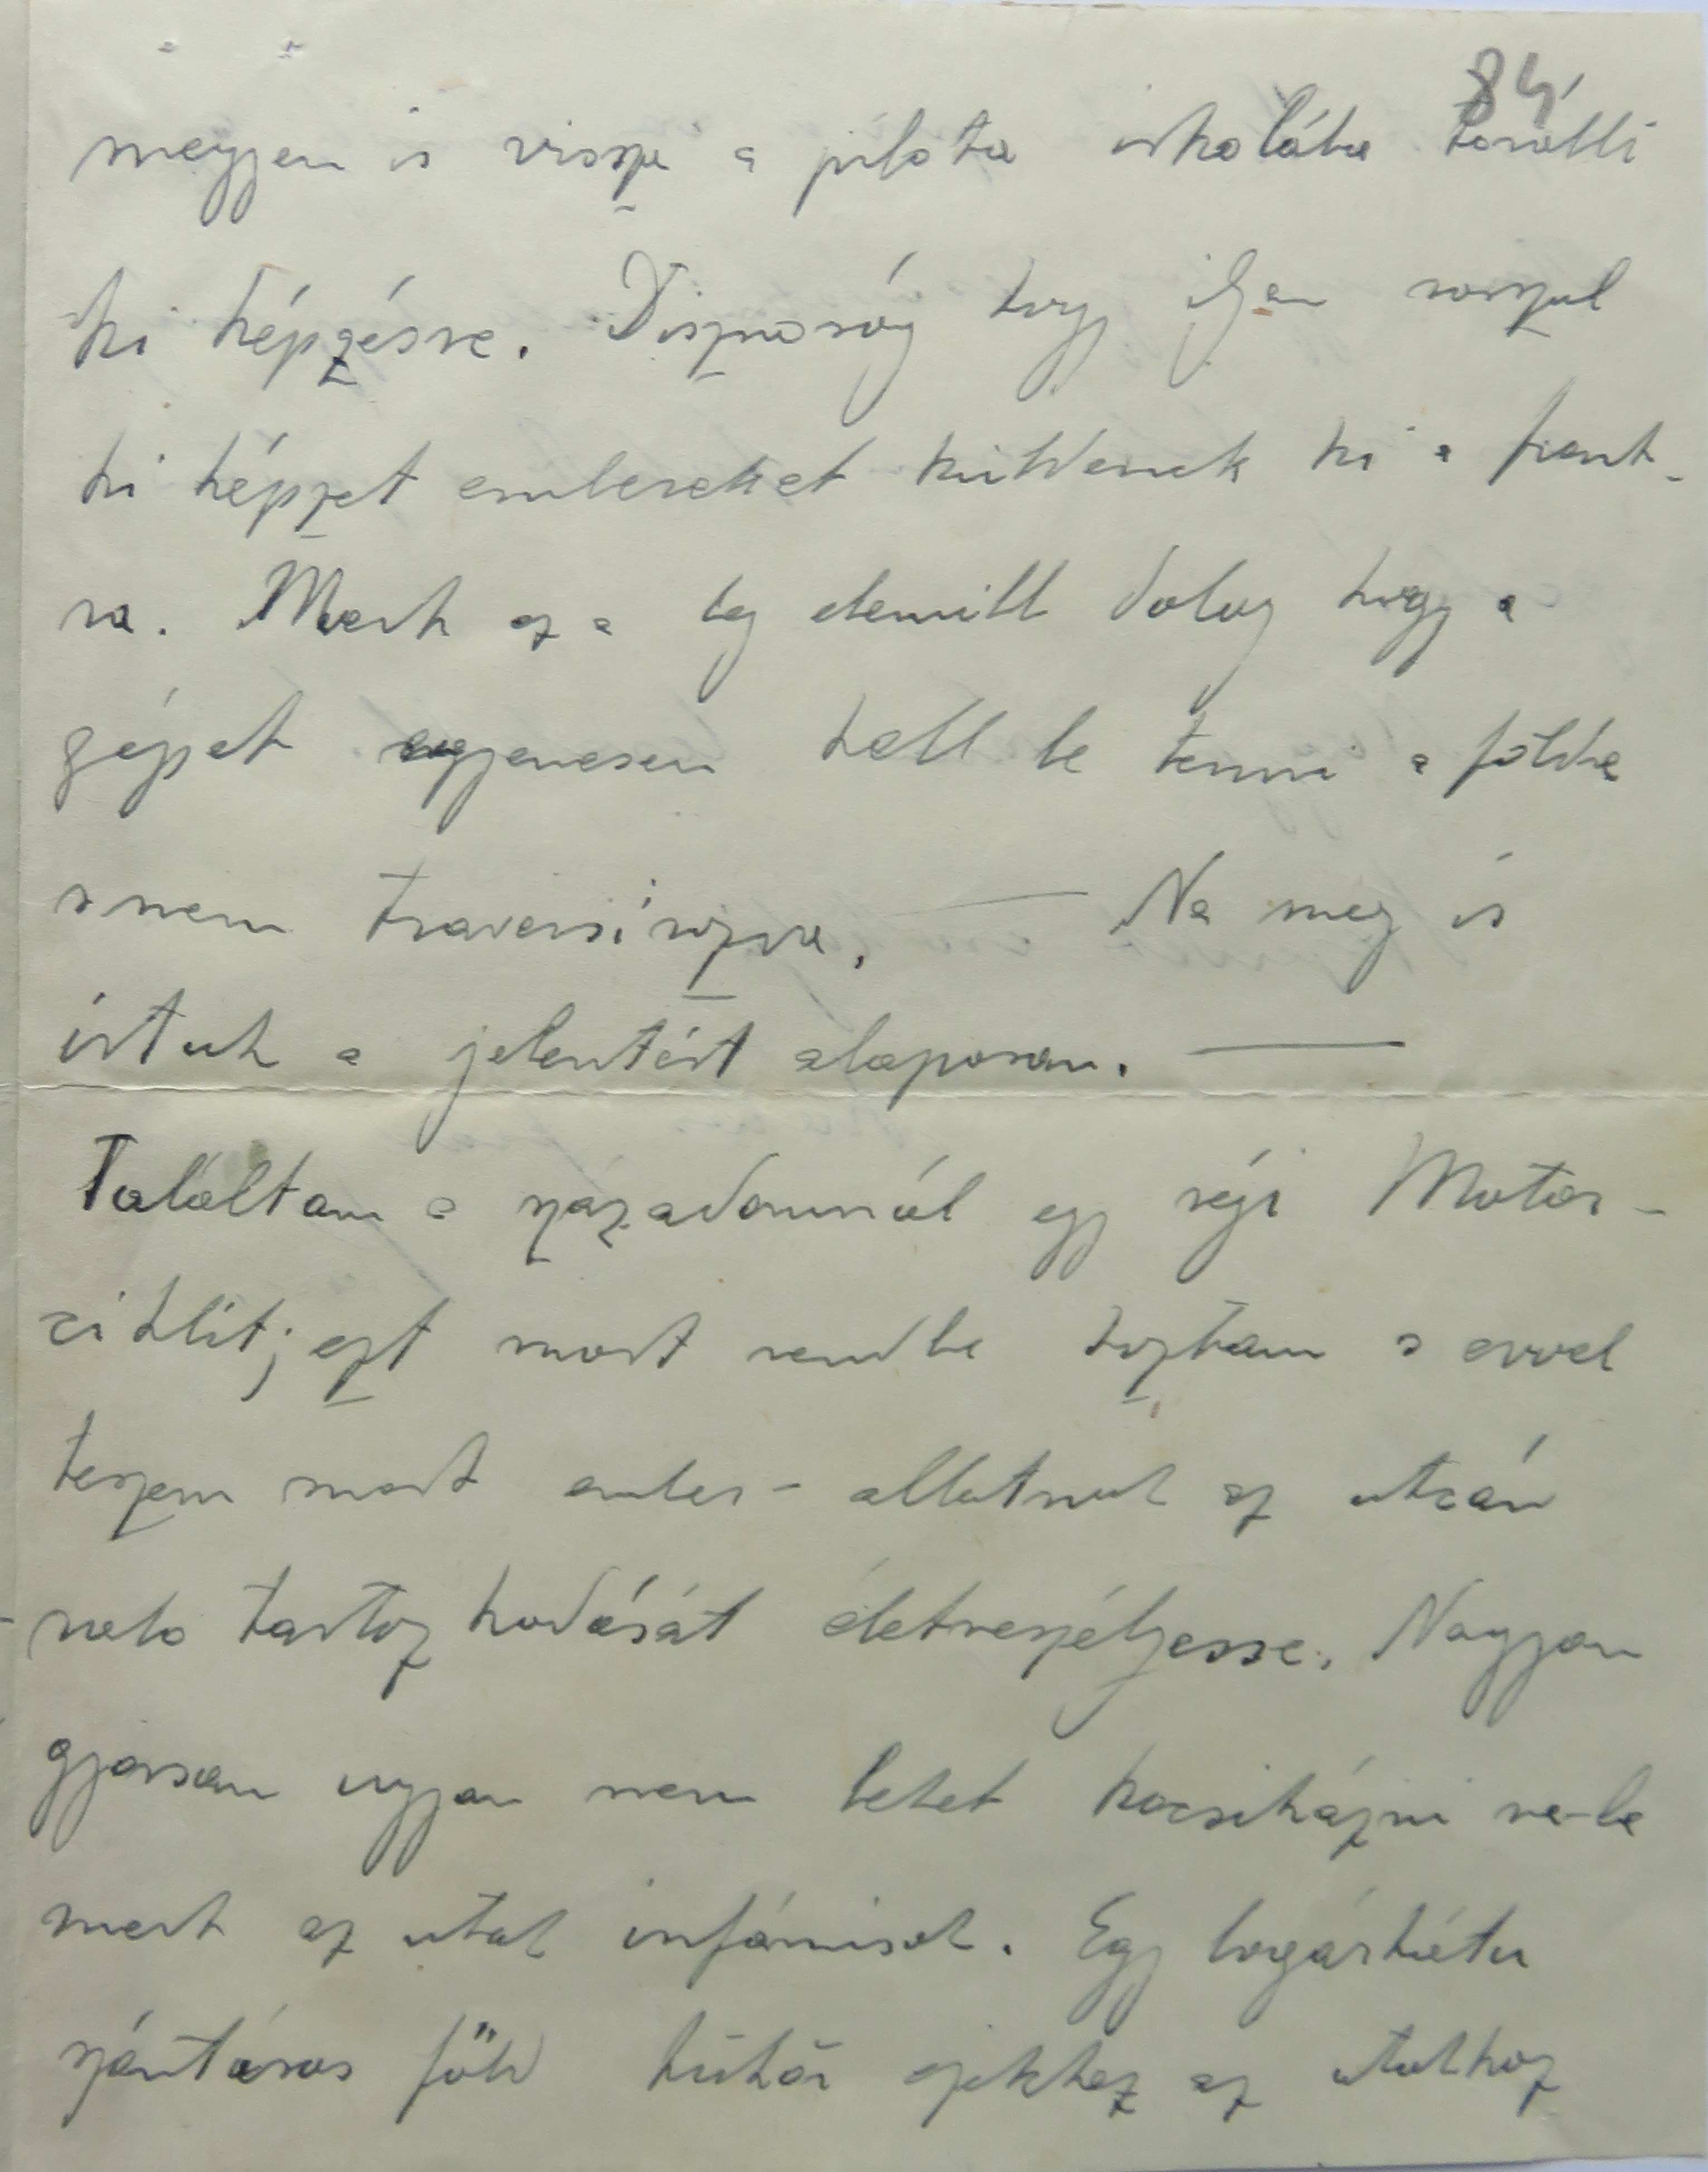 84
megyen is vissza a pilota iskolába további
ki képzésre. Disznoság hogy ilyen rosszul
ki képzet embereket küldenek ki a front-
ra. Mert ez a leg elemibb dolog hogy a
gépet egyenesen kell le tenni a földre
s nem traversirozva. — Na meg is
írtuk a jelentést alaposan. —
Találtam a századomnál egy régi Motor-
ciklit; ezt most rendbe hoztam s evvel
teszem most ember- állatnak az utcán
való tartozkodását életveszéljessé. Nagyon
gyorsan ugyan nem lehet kocsikázni ve-le
mert az utak infámisok. Egy bogárhátu
szántásos föld tükör ezekhez az utakhoz